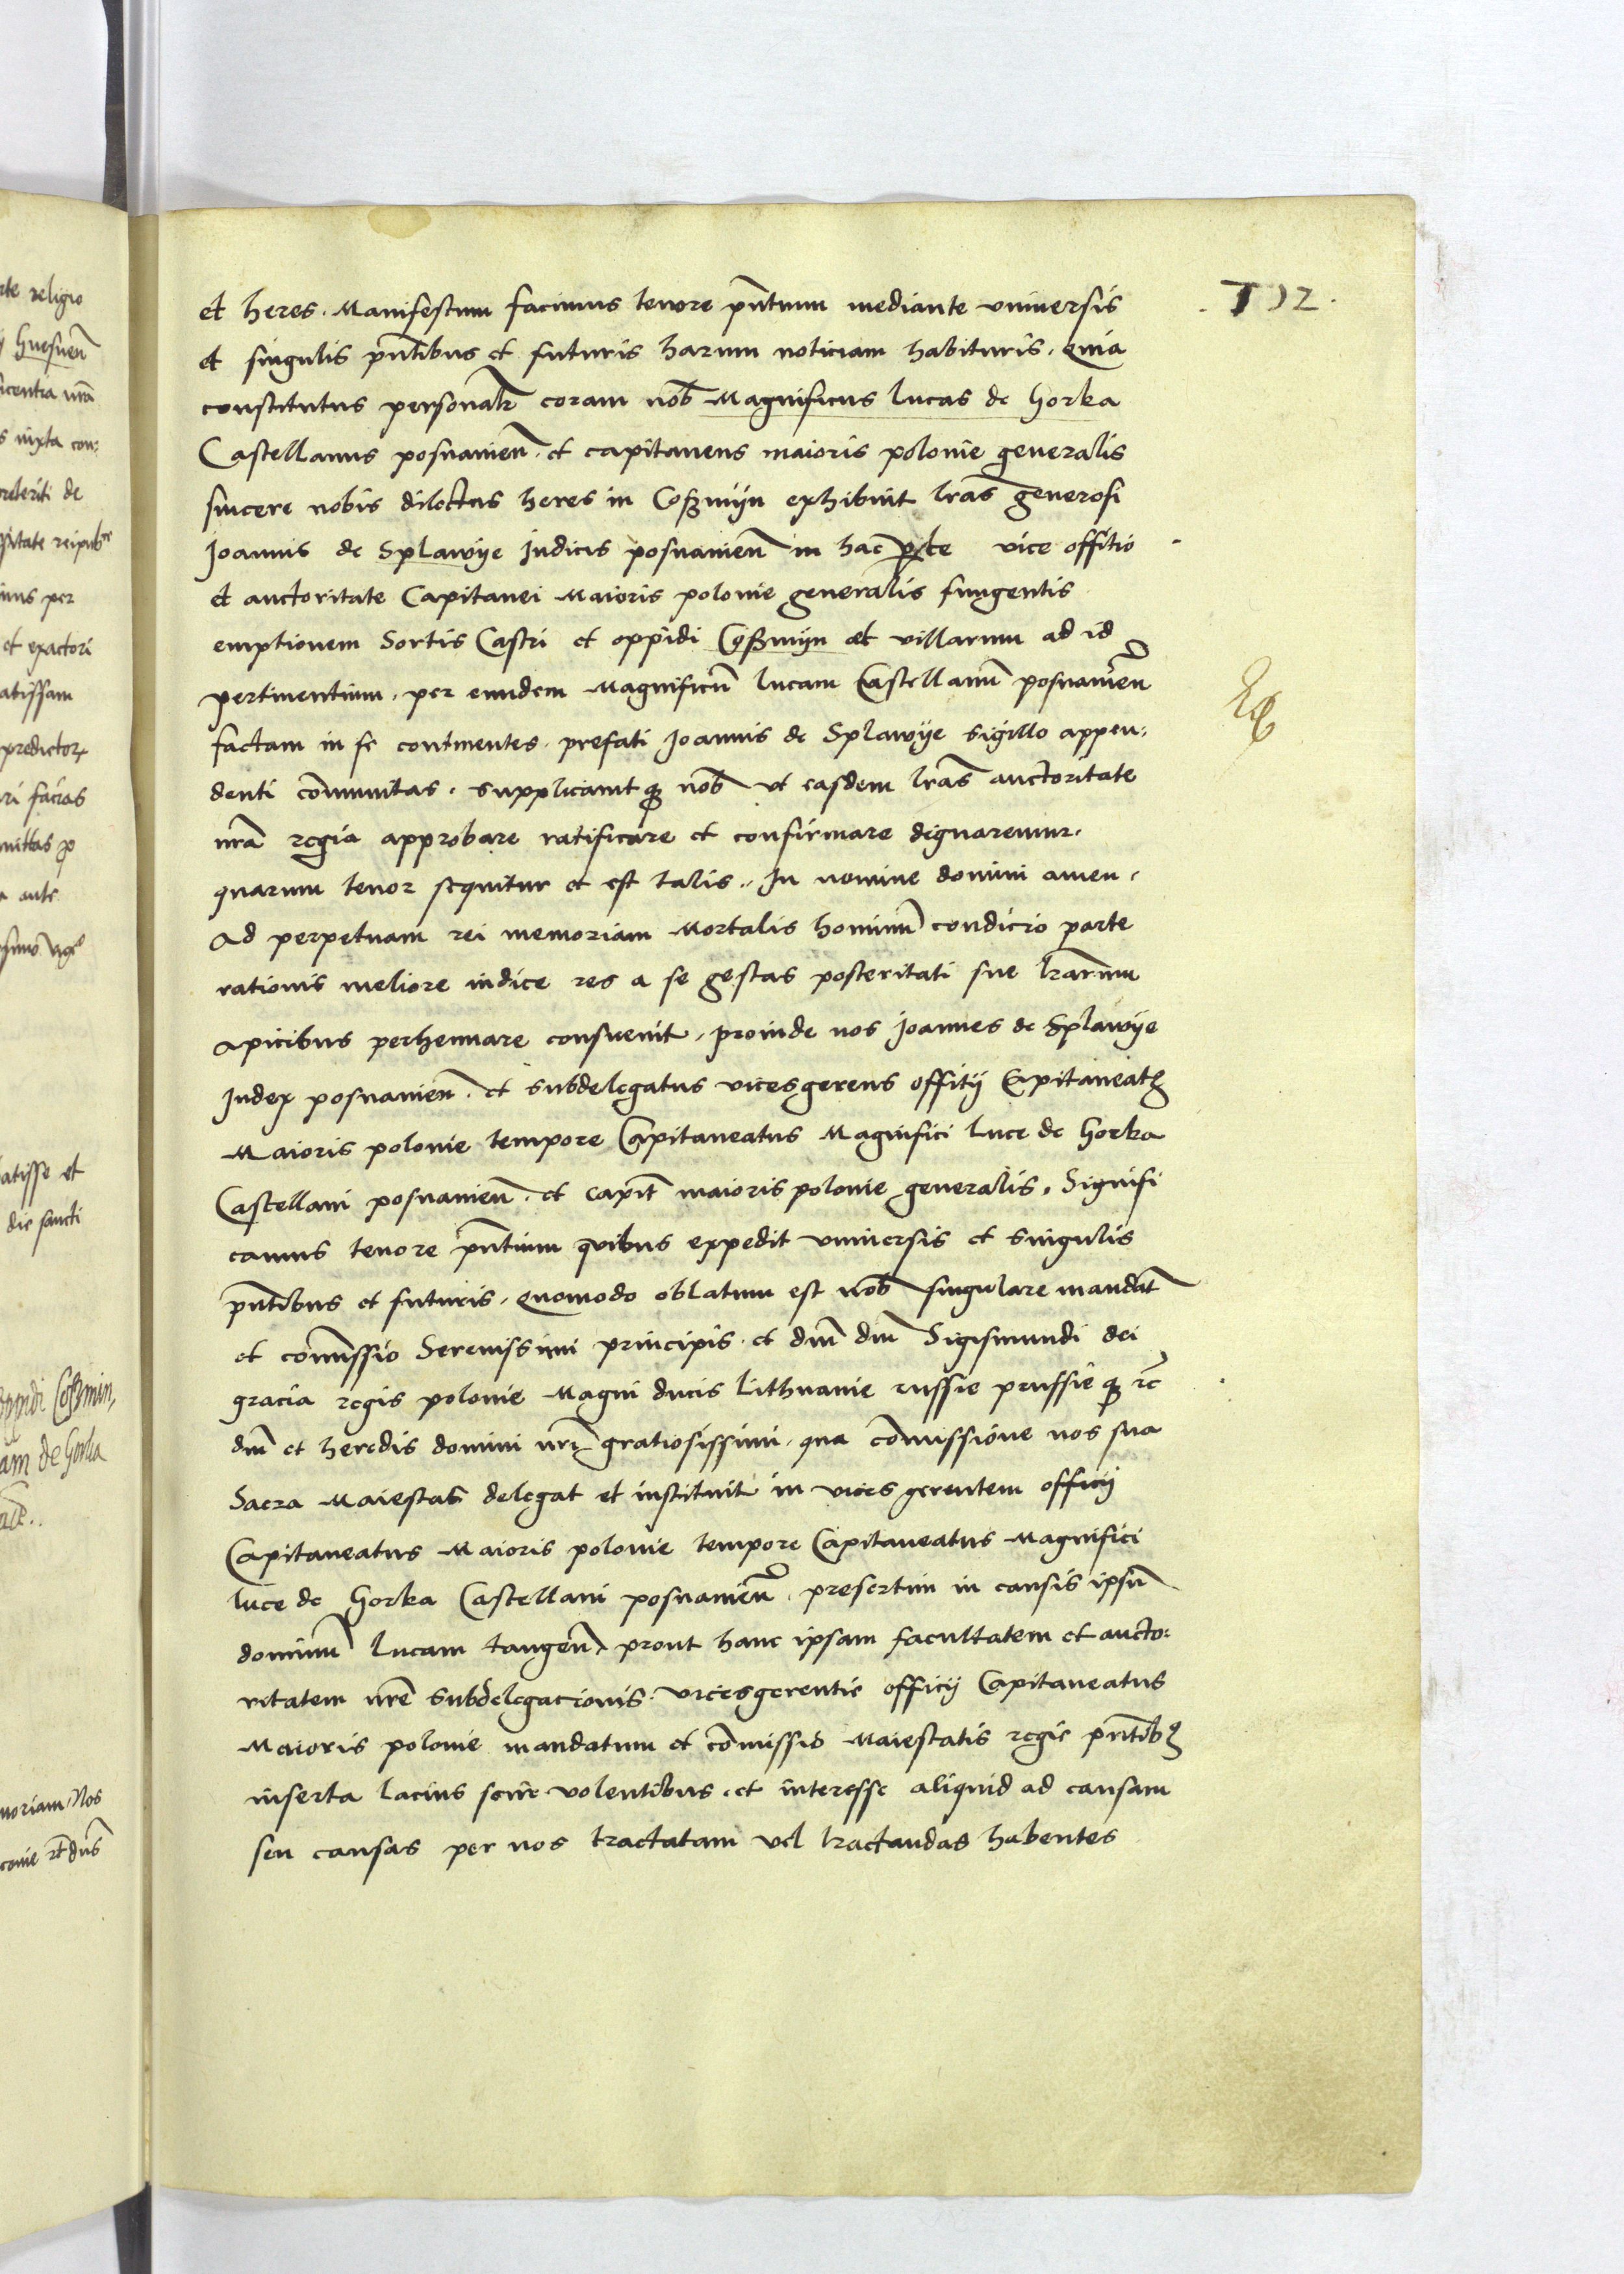 et heres. Manifestum facimus tenore pñtium mediante universis
et singulis pñtibus et futuris harum noticiam habituris. Quia
constitutus personalr coram nob Magnificus lucas de Gorka
Castellanus posnanien. et capitaneus maioris polonie generalis
sincere nobis dilectus heres in Coßmijn exhibuit lras generosi
Joannis de Splawye Judicis posnanien in hac pte vice offitio
et auctoritate Capitanei Maioris polonie generalis fungentis
emptionem Sortis Castri et oppidi Coßmijn et villarum ad id
pertinentium. per eundem Magnificu lucam Castellanu posnanien
factam in se continentes. prefati Joannis de Splawye sigillo appen:
denti comunitas. supplicavitq nob ut easdem lras auctoritate
nra regia approbare ratificare et confirmare dignaremur.
quarum tenor sequitur et est talis.. In nomine domini amen.
Ad perpetuam rei memoriam Mortalis hominu condicio parte
rationis meliore indice res a se gestas posteritati sue lrarum
apicibus perhennare consuevit. proinde nos Joannes de Splawye
Judex posnanien. et subdelegatus vicesgerens offitij Capitaneatus
Maioris polonie tempore Capitaneatus Magnifici Luce de Gorka
Castellani posnanien. et capit maioris polonie generalis. Signifi
camus tenore pñtium quibus expedit universis et singulis
pñtibus et futuris. Quomodo oblatum est nob singulare mandat
et comissio Serenissimi principis. et dni dni Sigismundi dei
gracia regis polonie Magni ducis Lithuanie russie prussieq rc
dni et heredis domini nri gratiosissimi. qua comissione nos sua
Sacra Maiestas delegat et instituit in vices gerentem officij
Capitaneatus Maioris polonie tempore Capitaneatus Magnifici
luce de Gorka Castellani posnanien. presertim in causis ipsu
dominu Lucam tangen prout hanc ipsam facultatem et aucto:
ritatem nre subdelegacionis. vicesgerentie officij Capitaneatus
Maioris polonie mandatum et comissio Maiestatis regie pñtibus
inserta lacius scire volentibus. et interesse aliquid ad causam
seu causas per nos tractatam vel tractandas habentes